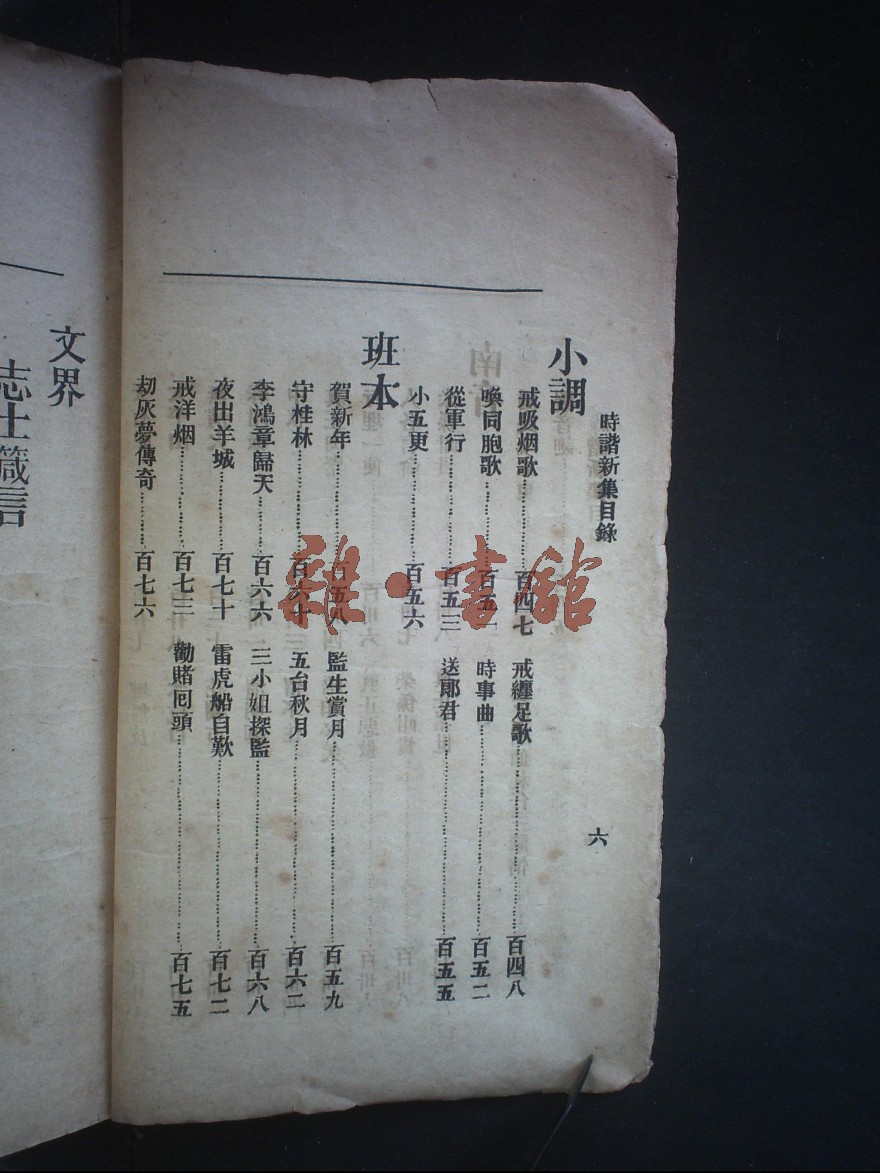 時諧新集目錄
六
小調
戒吸烟歌 百四七 戒纏足歌 百四八
喚同胞歌 百五一 時事曲 百五二
從軍行 百五三 送郎君 百五五
小五更 百五六
班本
賀新年 百五八 監生賞月 百五九
守桂林 百六十 五台秋月 百六二
李鴻章歸天 百六六 三小姐探監 百六八
夜出羊城 百七十 雷虎船自歎 百七二
戒洋烟 百七三 勸賭囘頭 百七五
刼灰夢傳奇 百七六
文界
志士箴言
雜·書館